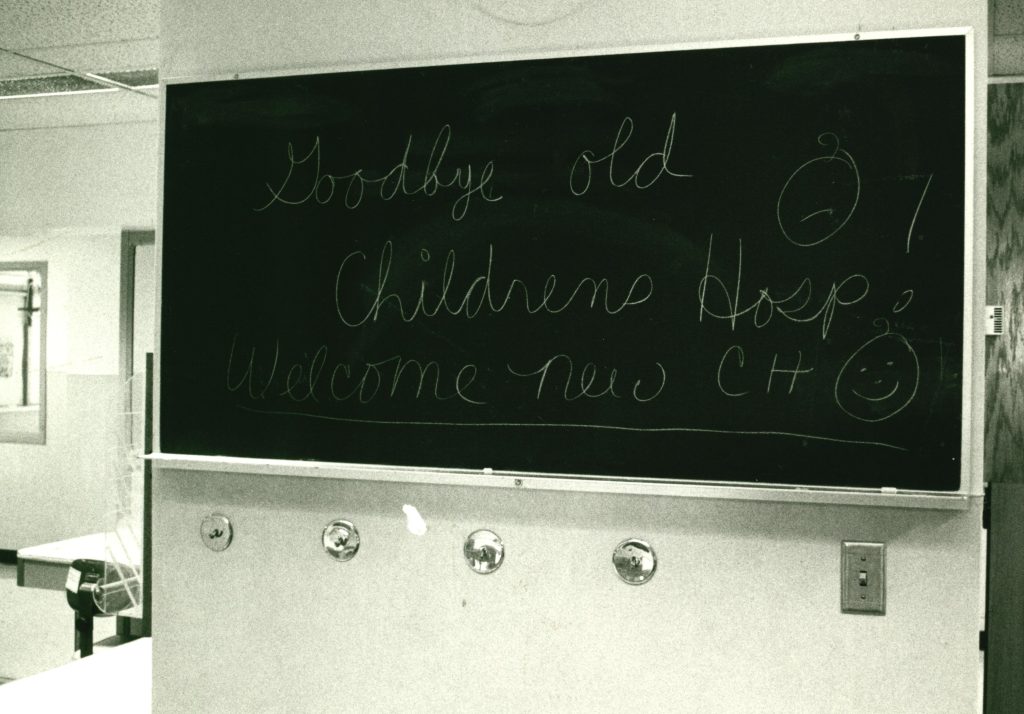 Goodbye old
Childrens Hosp!
Welcome new CH